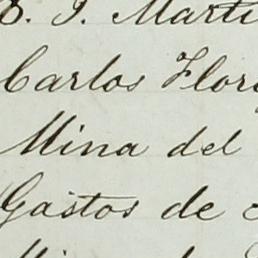 J. Marti
Carlos Flor
Mina del
Gastos de